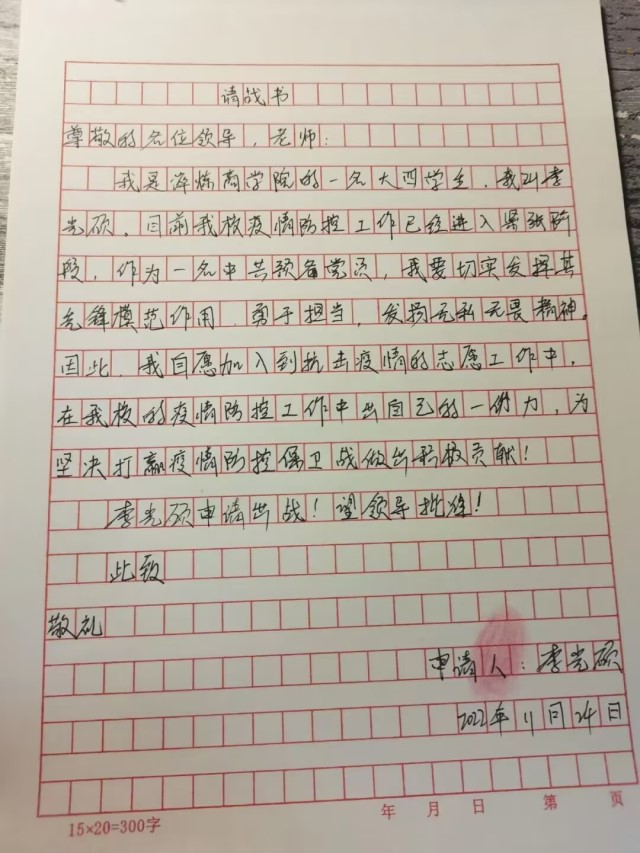 请战书
尊敬的各位领导，老师：
我是淬炼商学院的一名大四学生，我叫李
光硕，目前我校疫情防控工作已经进入紧张阶
段，作为一名中共预备党员，我要切实发挥其
先锋模范作用，勇于担当，发扬无私无畏精神。
因此，我自愿加入到抗击疫情的志愿工作中，
在我校的疫情防控工作中出自己的一份力，为
坚决打赢疫情防控保卫战做出积极贡献！
李光硕申请出战！望领导批准！
此致
敬礼
申请人：李光硕
2022年11月24日
15×20=300字 年 月 日 第 页